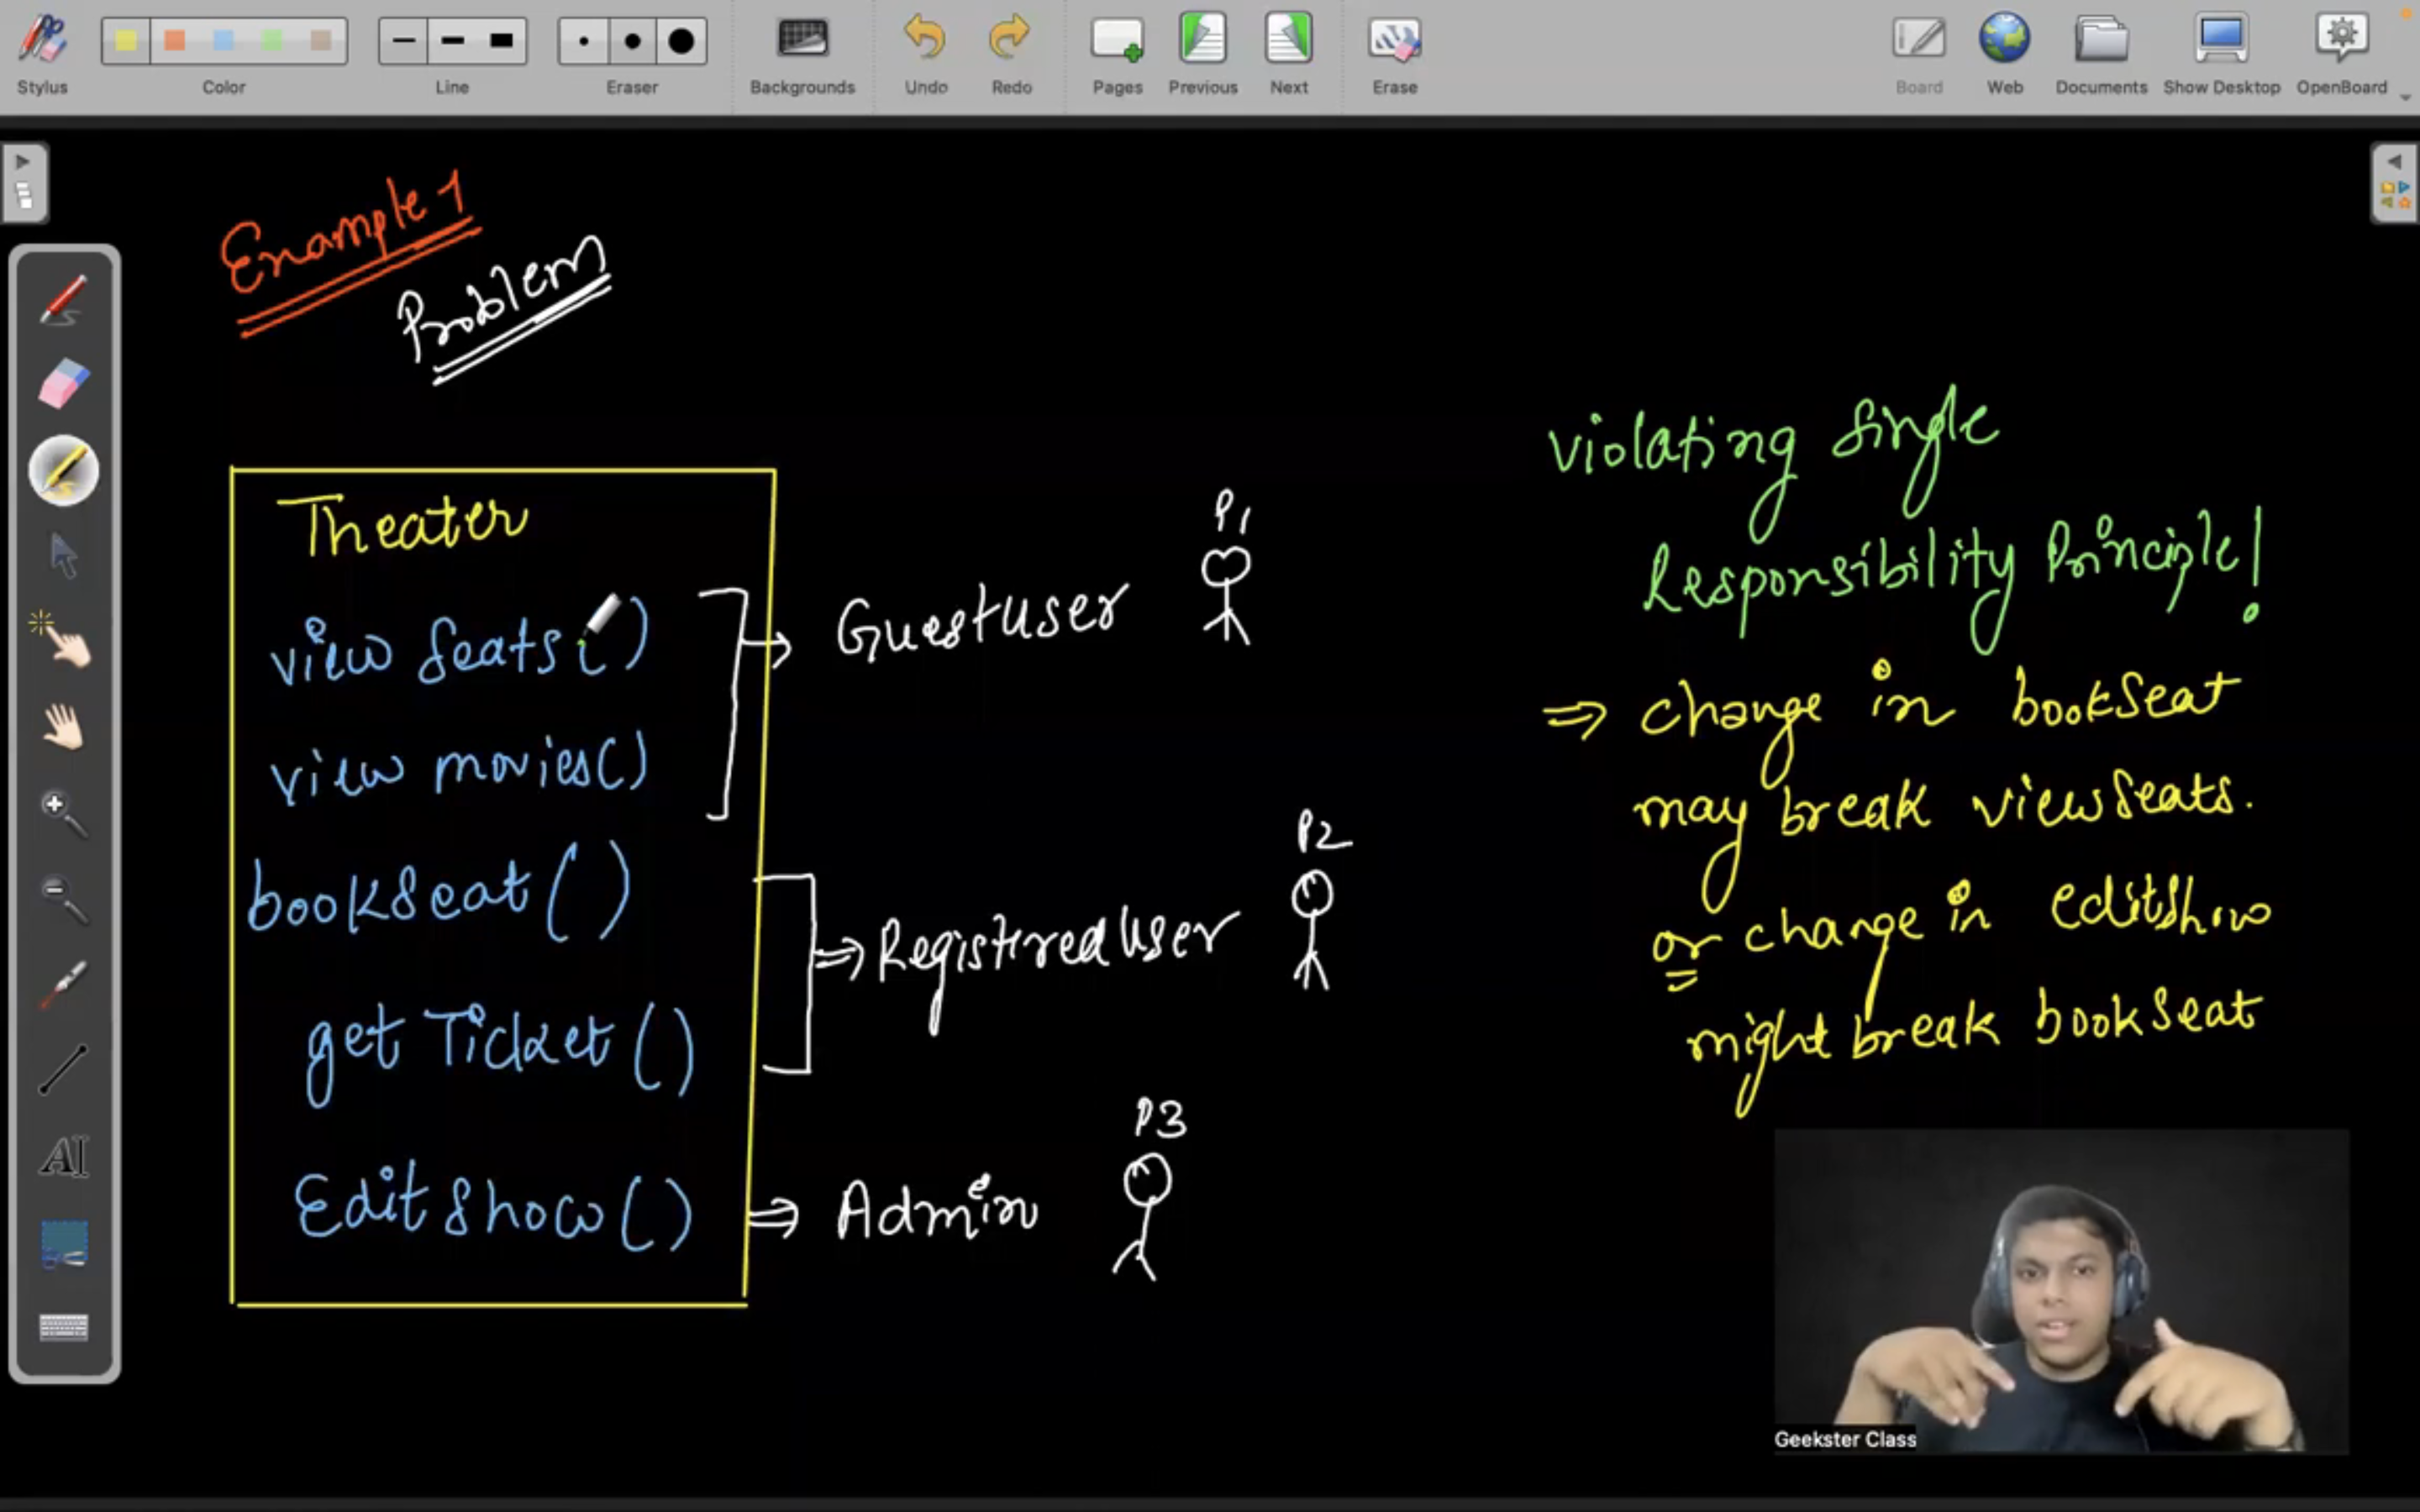 Stylus
Color
Line
Eraser
Backgrounds
Undo
Redo
Pages
Previous
Next
Erase
Board
Web
Documents
Show Desktop
OpenBoard
Example 1
Problem
Theater
view Seats()
view movies()
bookSeat()
get Ticket()
Edit Show()
P1
GuestUser
P2
RegisteredUser
P3
Admin
violating Single
Responsibility Principle!
⇒ change in bookSeat
may break viewSeats.
or change in editShow
might break bookSeat
AI
Geekster Class